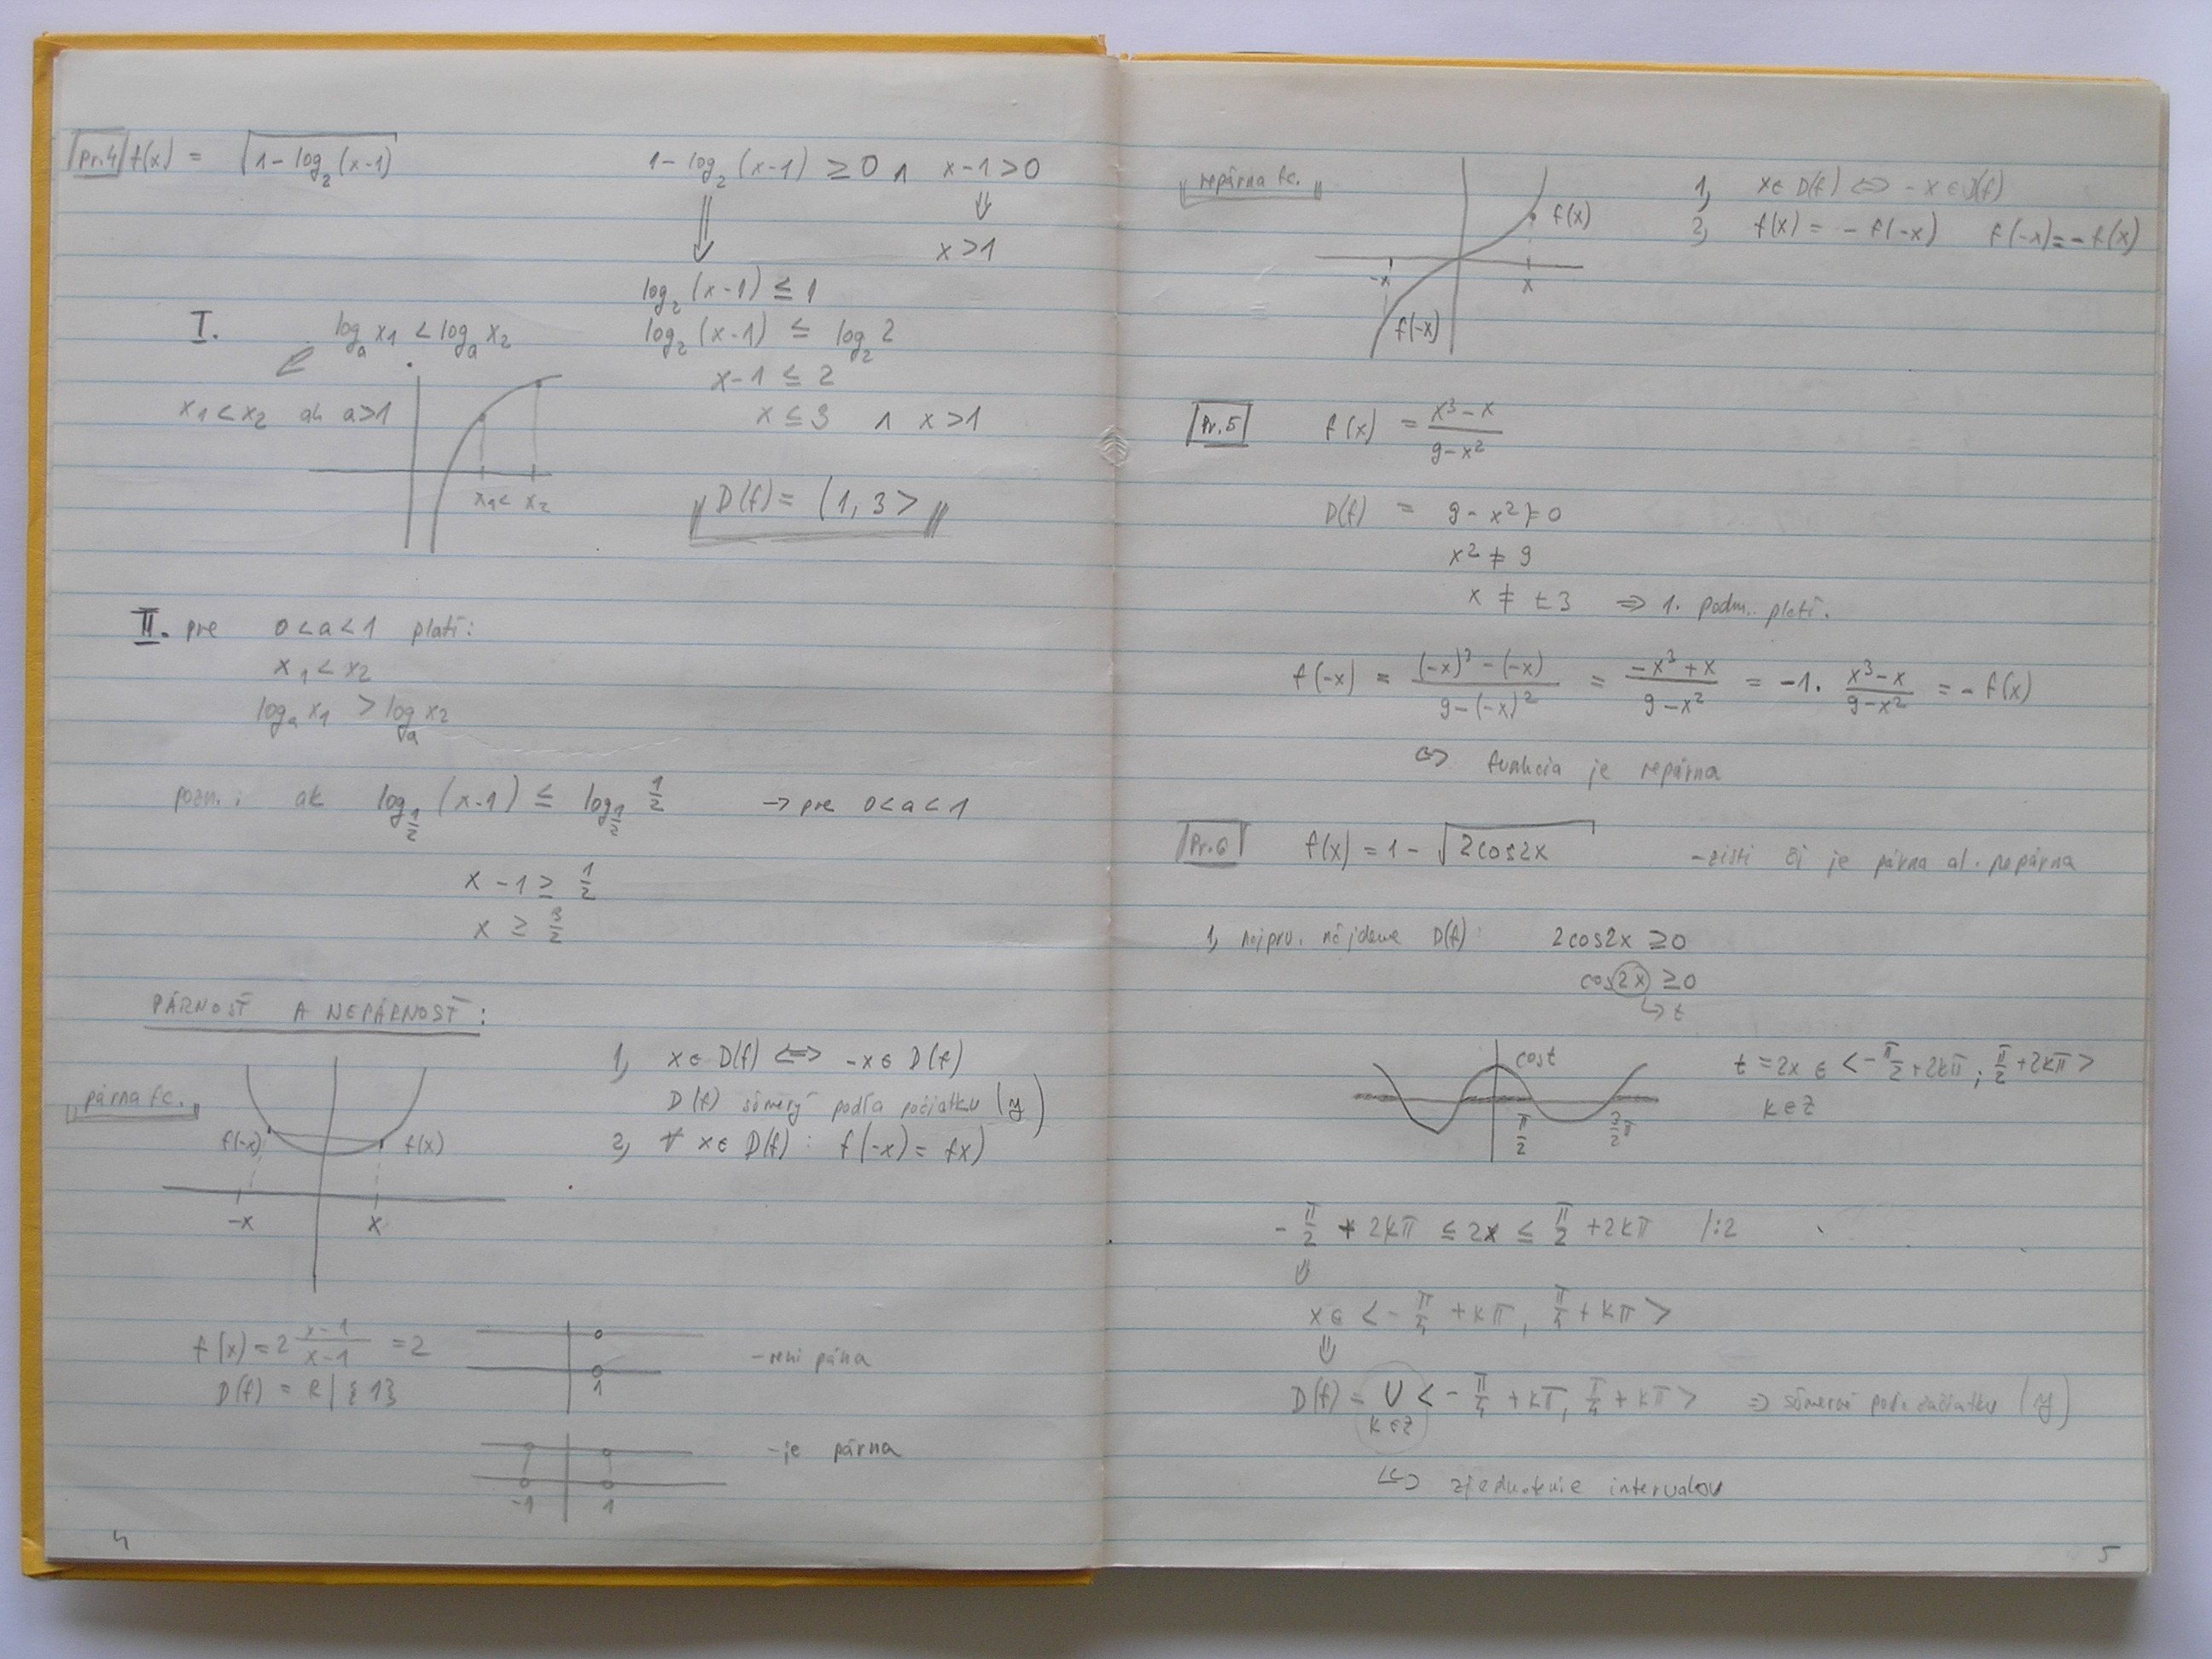 Pr.4 f(x) = √(1-log₂(x-1))
1-log₂(x-1) ≥0 ∧ x-1>0
⇓ ⇓
x>1
log₂(x-1) ≤ 1
I. logₐx₁ < logₐx₂
log₂(x-1) ≤ log₂2
x-1 ≤ 2
x₁<x₂ ak a>1
x ≤ 3 ∧ x>1
x₁< x₂
D(f) = (1,3>
II. pre 0<a<1 platí:
x₁<x₂
logₐx₁ > logₐx₂
pozn.: ak log_{1/2}(x-1) ≤ log_{1/2} 1/2 → pre 0<a<1
x-1 ≥ 1/2
x ≥ 3/2
PÁRNOSŤ A NEPÁRNOSŤ:
párna fc.
f(-x) f(x)
-x x
1, x∈D(f) ⇔ -x∈D(f)
D(f) súmerý podľa počiatku (y)
2, ∀ x∈D(f): f(-x) = fx)
f(x) = 2 (x-1)/(x-1) = 2
D(f) = R|{1}
1
-neni párna
-1 1
-je párna
4
nepárna fc.
f(x)
-x x
f(-x)
1, x∈D(f) ⇔ -x∈D(f)
2, f(x) = -f(-x) f(-x)=-f(x)
Pr.5 f(x) = (x³-x)/(9-x²)
D(f) = 9-x²≠0
x² ≠ 9
x ≠ ±3 ⇒ 1. podm. platí.
f(-x) = ((-x)³-(-x))/(9-(-x)²) = (-x³+x)/(9-x²) = -1. (x³-x)/(9-x²) = -f(x)
⇔ funkcia je nepárna
Pr.6 f(x) = 1-√(2cos2x) -zisti či je párna al. nepárna
1, najprv. nájdeme D(f): 2cos2x ≥0
cos2x ≥0
↪ t
cost
π/2 3/2π
t=2x ∈ <-π/2+2kπ; π/2+2kπ>
k∈Z
-π/2 + 2kπ ≤ 2x ≤ π/2 +2kπ /:2
⇓
x∈ <-π/4 +kπ, π/4+kπ>
⇓
D(f) = ∪ <-π/4 +kπ, π/4+kπ> ⇒ súmerné podľa začiatku (y)
k∈Z
↪ zjednotenie intervalov
5